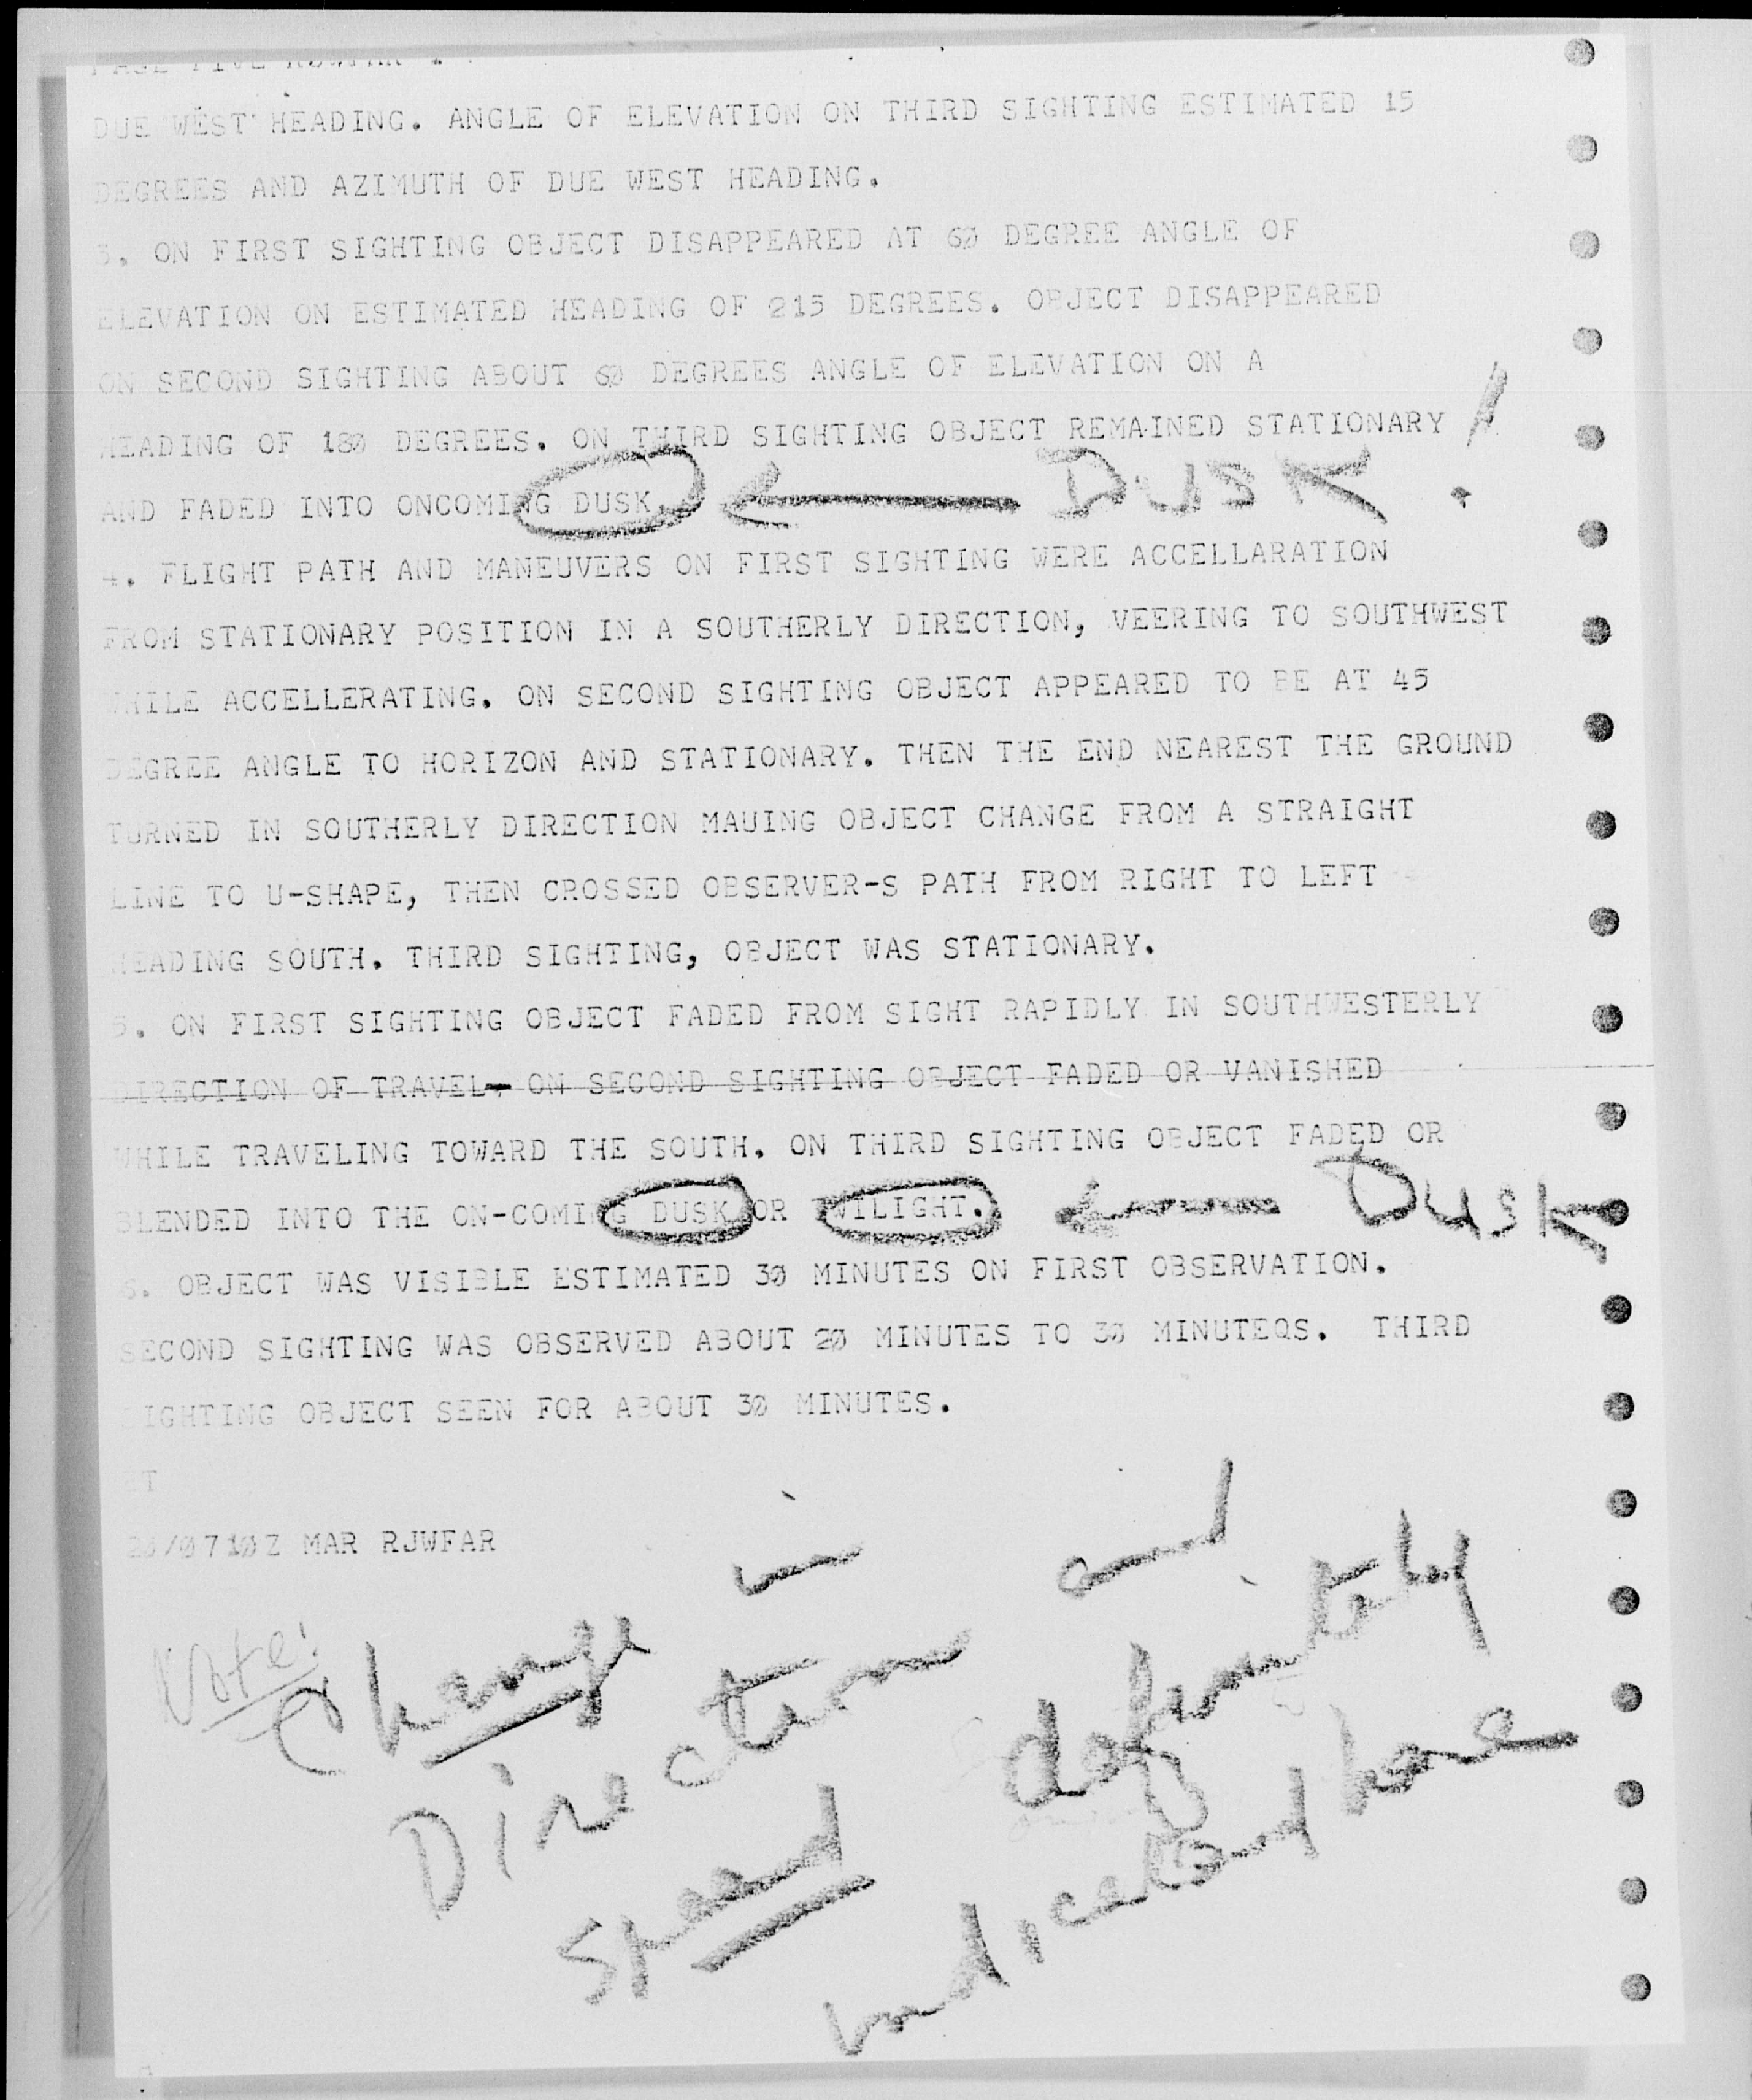 PAGE FIVE
DUE WEST HEADING. ANGLE OF ELEVATION ON THIRD SIGHTING ESTIMATED 15
DEGREES AND AZIMUTH OF DUE WEST HEADING.
3. ON FIRST SIGHTING OBJECT DISAPPEARED AT 60 DEGREE ANGLE OF
ELEVATION ON ESTIMATED HEADING OF 215 DEGREES. OBJECT DISAPPEARED
ON SECOND SIGHTING ABOUT 60 DEGREES ANGLE OF ELEVATION ON A
HEADING OF 180 DEGREES. ON THIRD SIGHTING OBJECT REMAINED STATIONARY
AND FADED INTO ONCOMING DUSK. DUSK !
4. FLIGHT PATH AND MANEUVERS ON FIRST SIGHTING WERE ACCELLARATION
FROM STATIONARY POSITION IN A SOUTHERLY DIRECTION, VEERING TO SOUTHWEST
WHILE ACCELLERATING. ON SECOND SIGHTING OBJECT APPEARED TO BE AT 45
DEGREE ANGLE TO HORIZON AND STATIONARY. THEN THE END NEAREST THE GROUND
TURNED IN SOUTHERLY DIRECTION MAUING OBJECT CHANGE FROM A STRAIGHT
LINE TO U-SHAPE, THEN CROSSED OBSERVER-S PATH FROM RIGHT TO LEFT
HEADING SOUTH. THIRD SIGHTING, OBJECT WAS STATIONARY.
5. ON FIRST SIGHTING OBJECT FADED FROM SIGHT RAPIDLY IN SOUTHWESTERLY
DIRECTION OF TRAVEL, ON SECOND SIGHTING OBJECT FADED OR VANISHED
WHILE TRAVELING TOWARD THE SOUTH. ON THIRD SIGHTING OBJECT FADED OR
BLENDED INTO THE ON-COMING DUSK OR TWILIGHT. Dusk
6. OBJECT WAS VISIBLE ESTIMATED 30 MINUTES ON FIRST OBSERVATION.
SECOND SIGHTING WAS OBSERVED ABOUT 20 MINUTES TO 30 MINUTEQS. THIRD
SIGHTING OBJECT SEEN FOR ABOUT 30 MINUTES.
BT
20/0710Z MAR RJWFAR
Note: Change in
Direction and
Speed definitely
indicated here